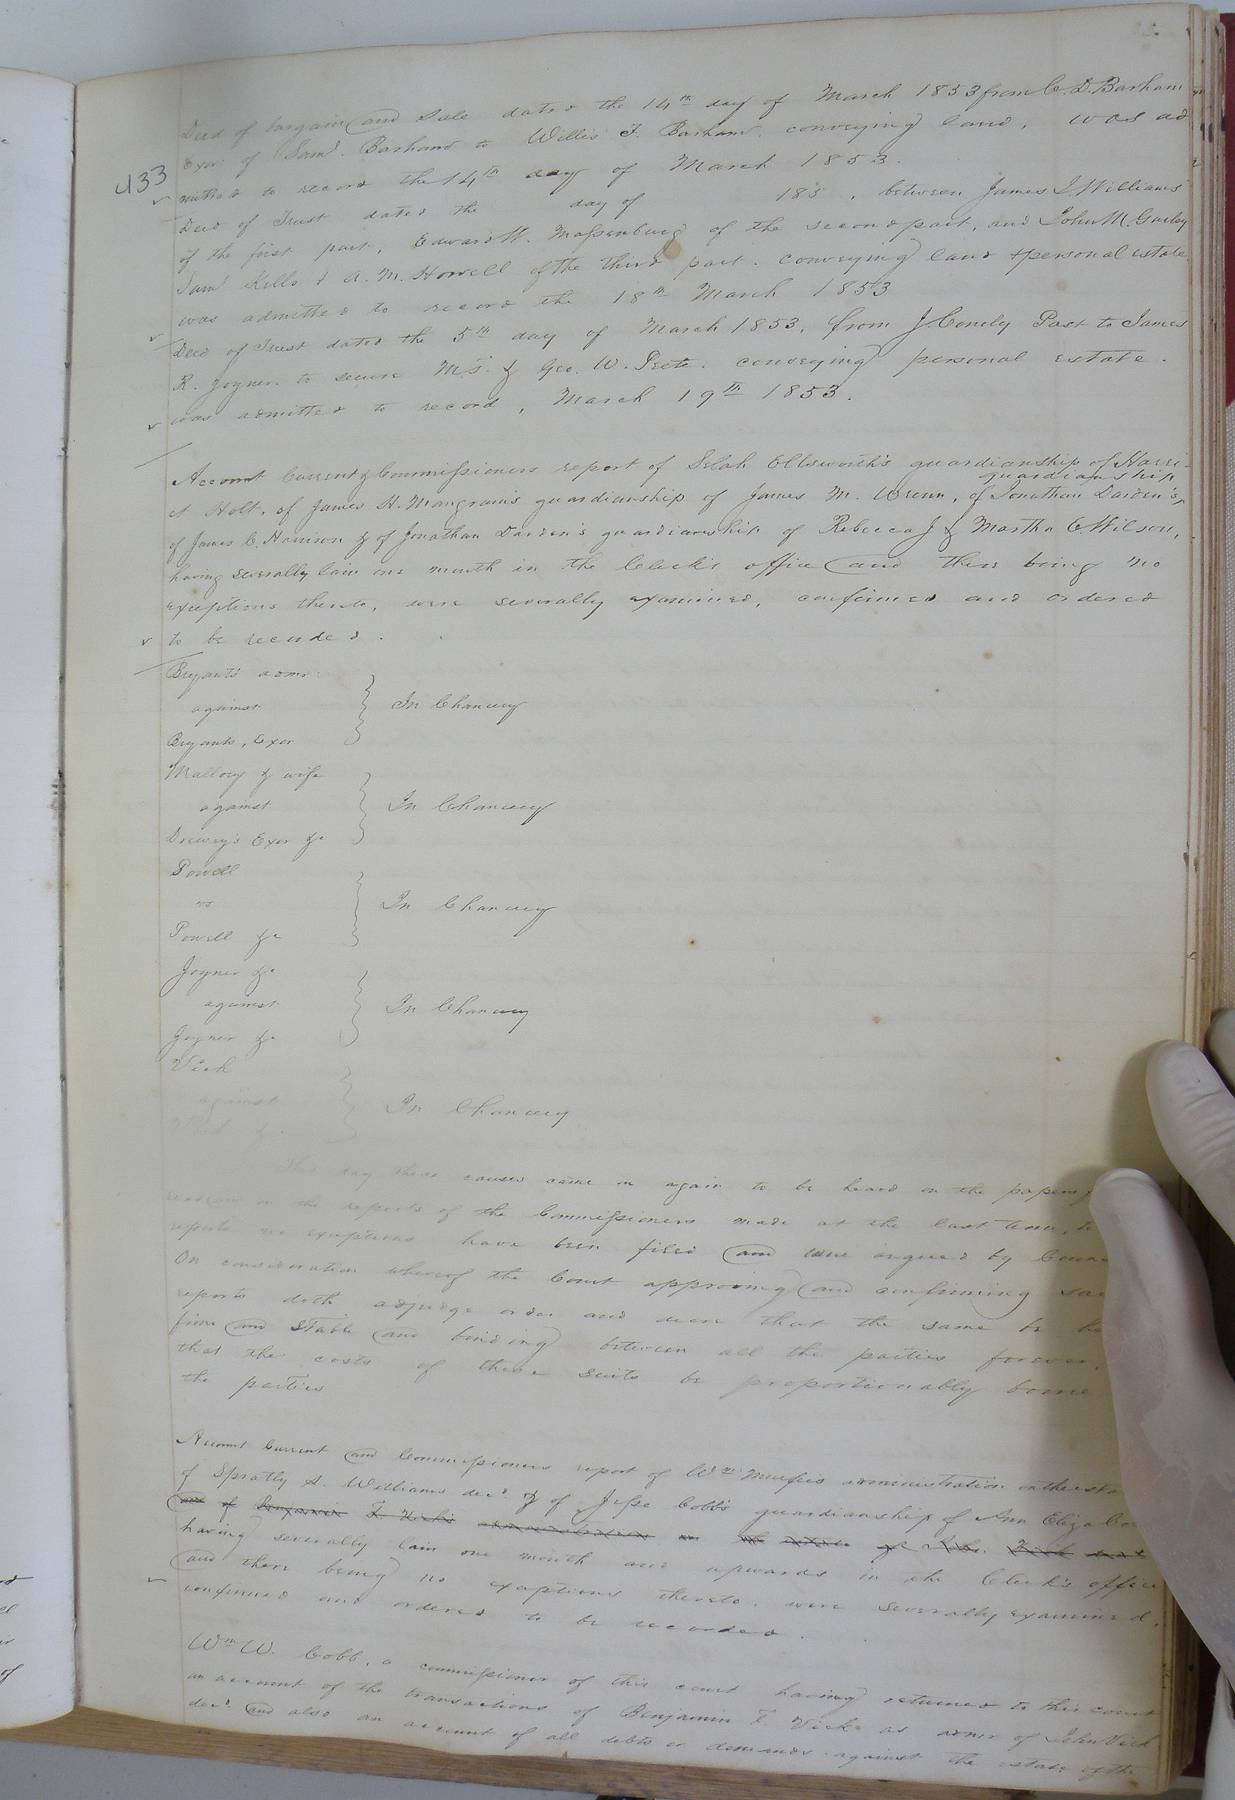 Deed of bargain and Sale dated the 14th day of March 1853 from C. D. Barham
Exor of Saml. Barham to Willis T. Barham conveying land, was ad
433
mitted to record the 14th day of March 1853.
Deed of Trust dated the day of 185 , between James I. Williams
of the first part, Edward W. Massenburg of the second part, and John M. Gurley
Saml Kello & A. M. Howell of the third part. conveying land & personal estate
was admitted to record the 18th March 1853
Deed of Trust dated the 5th day of March 1853, from J. Conely Past to James
R. Joyner. to secure & Geo. W. Peete. conveying personal estate.
was admitted to record, March 19th 1853.
Account Current & Commissioners report of Selah Ellsworth's guardianship of Harri-
guardianship
et Holt, of James H. Mangram's guardianship of James M. Wrenn, of Jonathan Darden's
of James C. Harrison & of Jonathan Darden's guardianship of Rebecca J & Martha C. Wilson,
having severally lain one month in the Clerk's office and there being no
exceptions thereto, were severally examined, confirmed and ordered
to be recorded.
Bryant's admr
against In Chancery
Bryants, Exor
Mallory & wife
against In Chancery
Drewry's Exor &c
Powell
vs In Chancery
Powell &c
Joyner &c
against In Chancery
Joyner &c
Vick
against In Chancery
Vick &c
This day these causes came on again to be heard on the papers
on the reports of the Commissioners made at the last term, to
reports no exceptions have been filed and were argued by Couns
On consideration whereof the Court approving and confirming sai
reports doth adjudge order and decree that the same be he
firm and stable and binding between all the parties forever,
that the costs of these suits be proportionably borne
the parties
Account Current and Commissioners report of Wm Murfee's administration on the esta
of Spratly A. Williams decd & of Jesse Cobb's guardianship of Ann Eliza Co
and of Benjamin F. Vick's administration on the estate of John Vick decd
having severally lain one month and upwards in the Clerk's office
and there being no exceptions thereto. were severally examined,
confirmed and ordered to be recorded.
Wm W. Cobb, a commissioner of this court having returned to this court
an account of the transactions of Benjamin F. Vick as admr of John Vick
decd and also an account of all debts or demands against the estate of the